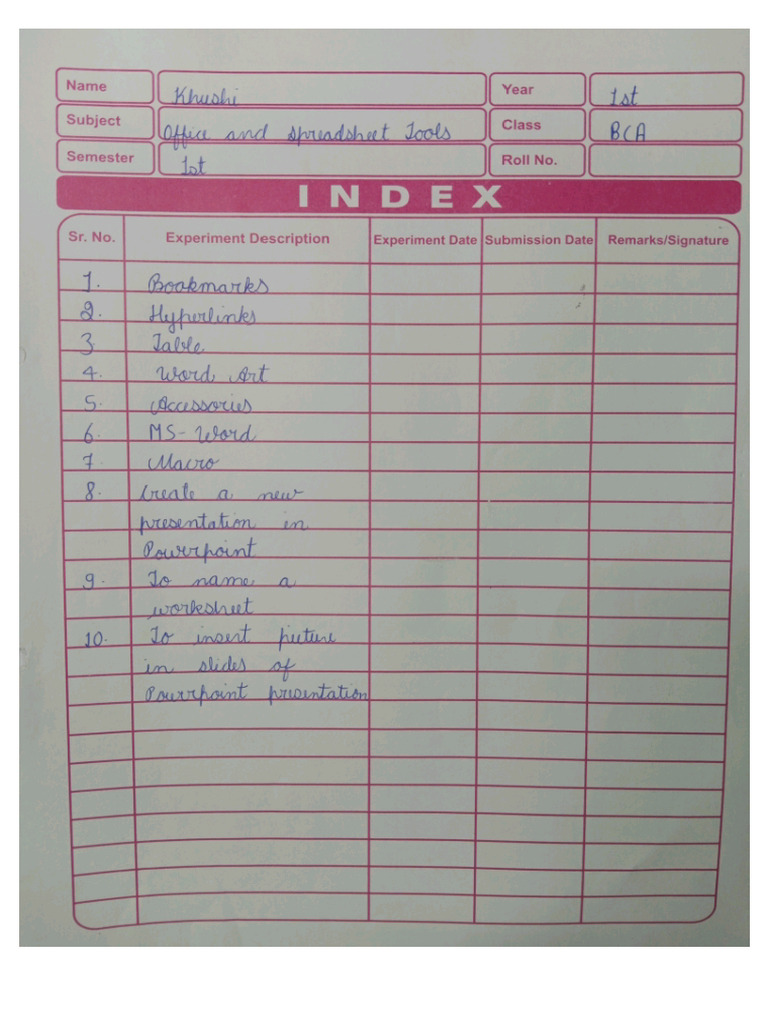 Name Khushi Year 1st
Subject Office and Spreadsheet Tools Class BCA
Semester 1st Roll No.
INDEX
Sr. No. Experiment Description Experiment Date Submission Date Remarks/Signature
1. Bookmarks
2. Hyperlinks
3 Table
4. Word Art
5. Accessories
6. MS-Word
7. Macro
8. Create a new
presentation in
Powerpoint
9. To name a
worksheet
10. To insert picture
in slides of
Powerpoint presentation